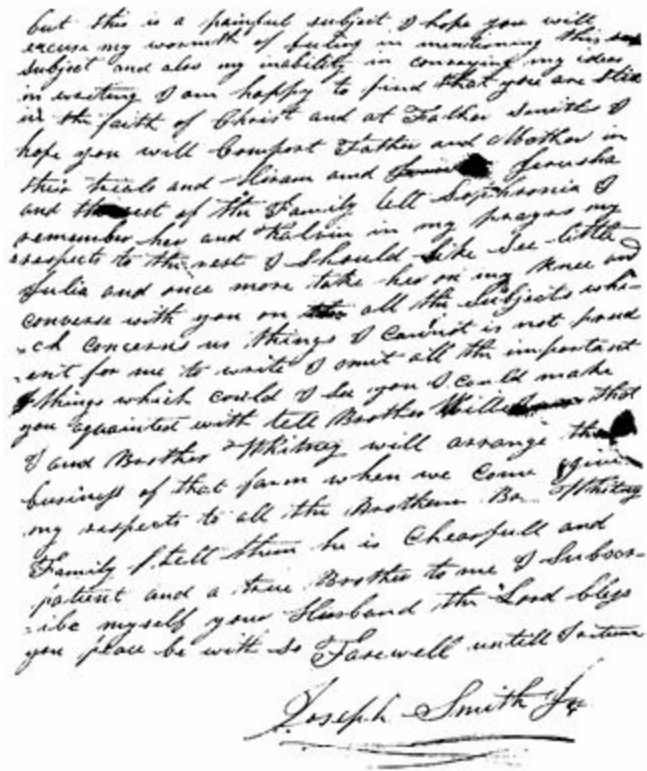 but this is a painful subject I hope you will
excuse my wormth of feeling in mentioning this
subject and also my inability in convaying my ideas
in writing I am happy to find that you are still
in the faith of Christ and at Father Smiths I
hope you will Comfort Father and Mother in
their trials and Hiram and Jerusha
and the rest of the Family tell Sophronia I
remember her and Kalvin in my prayrs my
respects to the rest I Should like See little
Julia and once more take her on my Knee and
converse with you on all the Subjects whi-
-ch concerns us things I cannot is not prud
-ent for me to write I omit all the important
things which could I See you I could make
you aquainted with tell Brother that
I and Brother Whitney will arrange the
business of that farm when we Come give
my respects to all the Brotheren Br Whitney
Family tell them he is Chearfull and
patient and a true Brother to me I Subscr-
-ibe myself your Husband the Lord bless
you peace be with So Farewell untill I return
Joseph Smith Jr